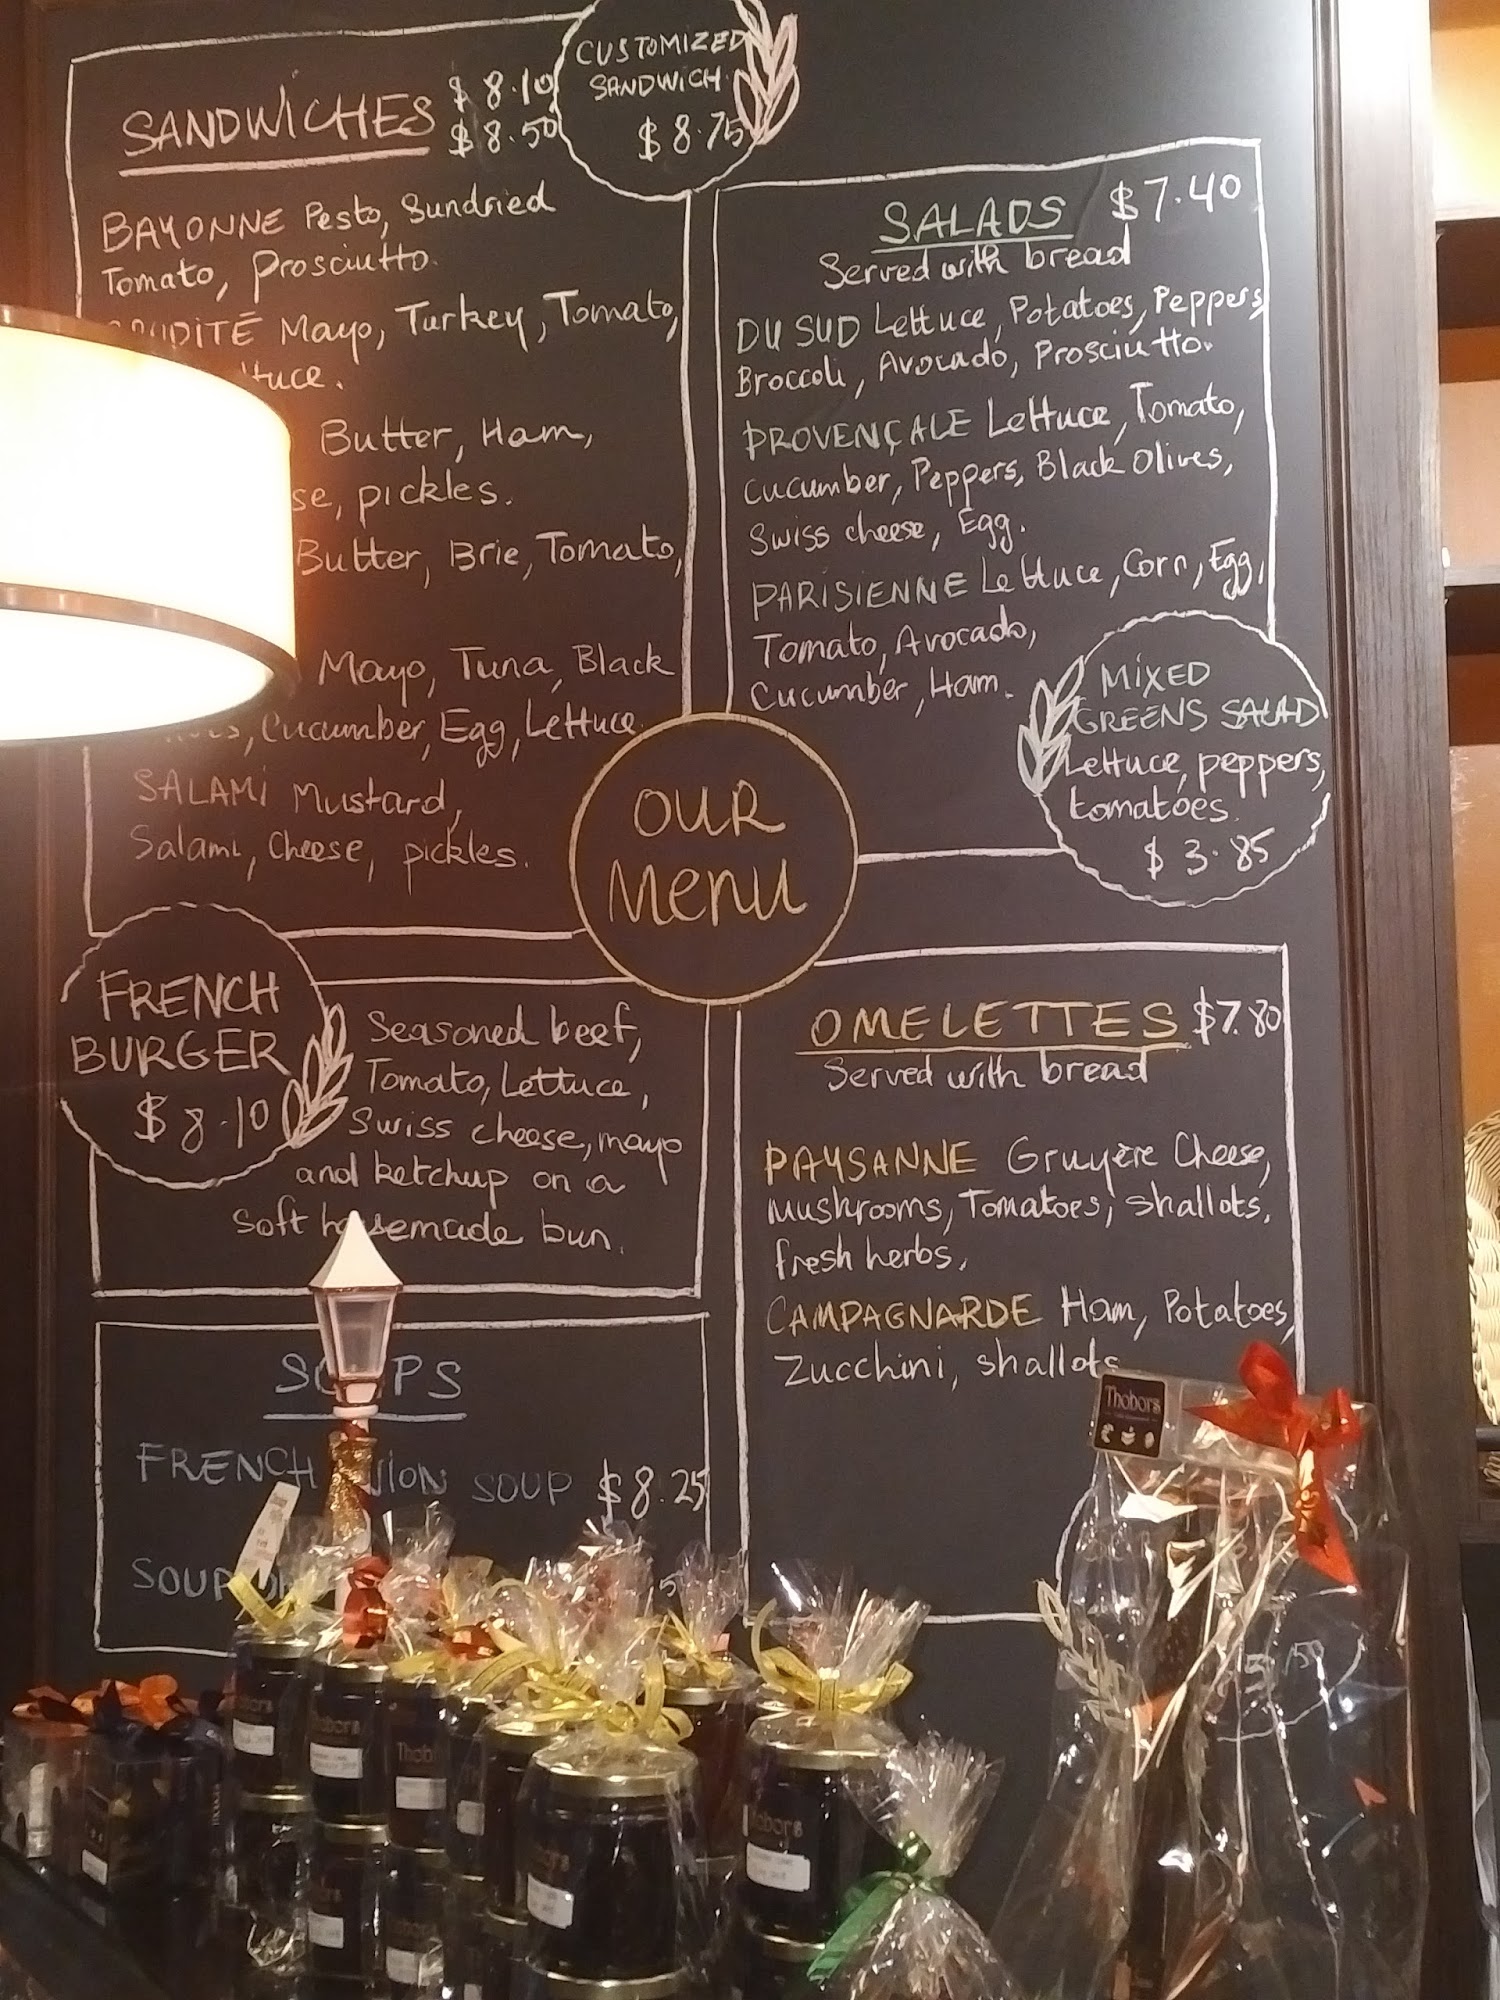 CUSTOMIZED
SANDWICH
$8.75
SANDWICHES
$8.10
$8.50
BAYONNE Pesto, Sundried
Tomato, prosciutto.
Mayo, Turkey, Tomato,
Butter, Ham,
pickles.
Butter, Brie, Tomato,
Mayo, Tuna, Black
Cucumber, Egg, Lettuce.
SALAMI Mustard,
Salami, Cheese, pickles.
SALADS $7.40
Served with bread
DU SUD Lettuce, Potatoes, Peppers,
Broccoli, Avocado, Prosciutto.
PROVENÇALE Lettuce, Tomato,
Cucumber, Peppers, Black Olives,
Swiss cheese, Egg.
PARISIENNE Lettuce, Corn, Egg,
Tomato, Avocado,
Cucumber, Ham.
MIXED
GREENS SALAD
Lettuce, peppers,
tomatoes.
$3.85
OUR
Menu
FRENCH
BURGER
$8.10
Seasoned beef,
Tomato, Lettuce,
Swiss cheese, mayo
and ketchup on a
Soft housemade bun.
OMELETTES $7.80
Served with bread
PAYSANNE Gruyère Cheese,
Mushrooms, Tomatoes, shallots,
fresh herbs.
CAMPAGNARDE Ham, Potatoes,
Zucchini, shallots
SOUPS
FRENCH SOUP $8.25
SOUP
Thobors
Thobors
Thobors